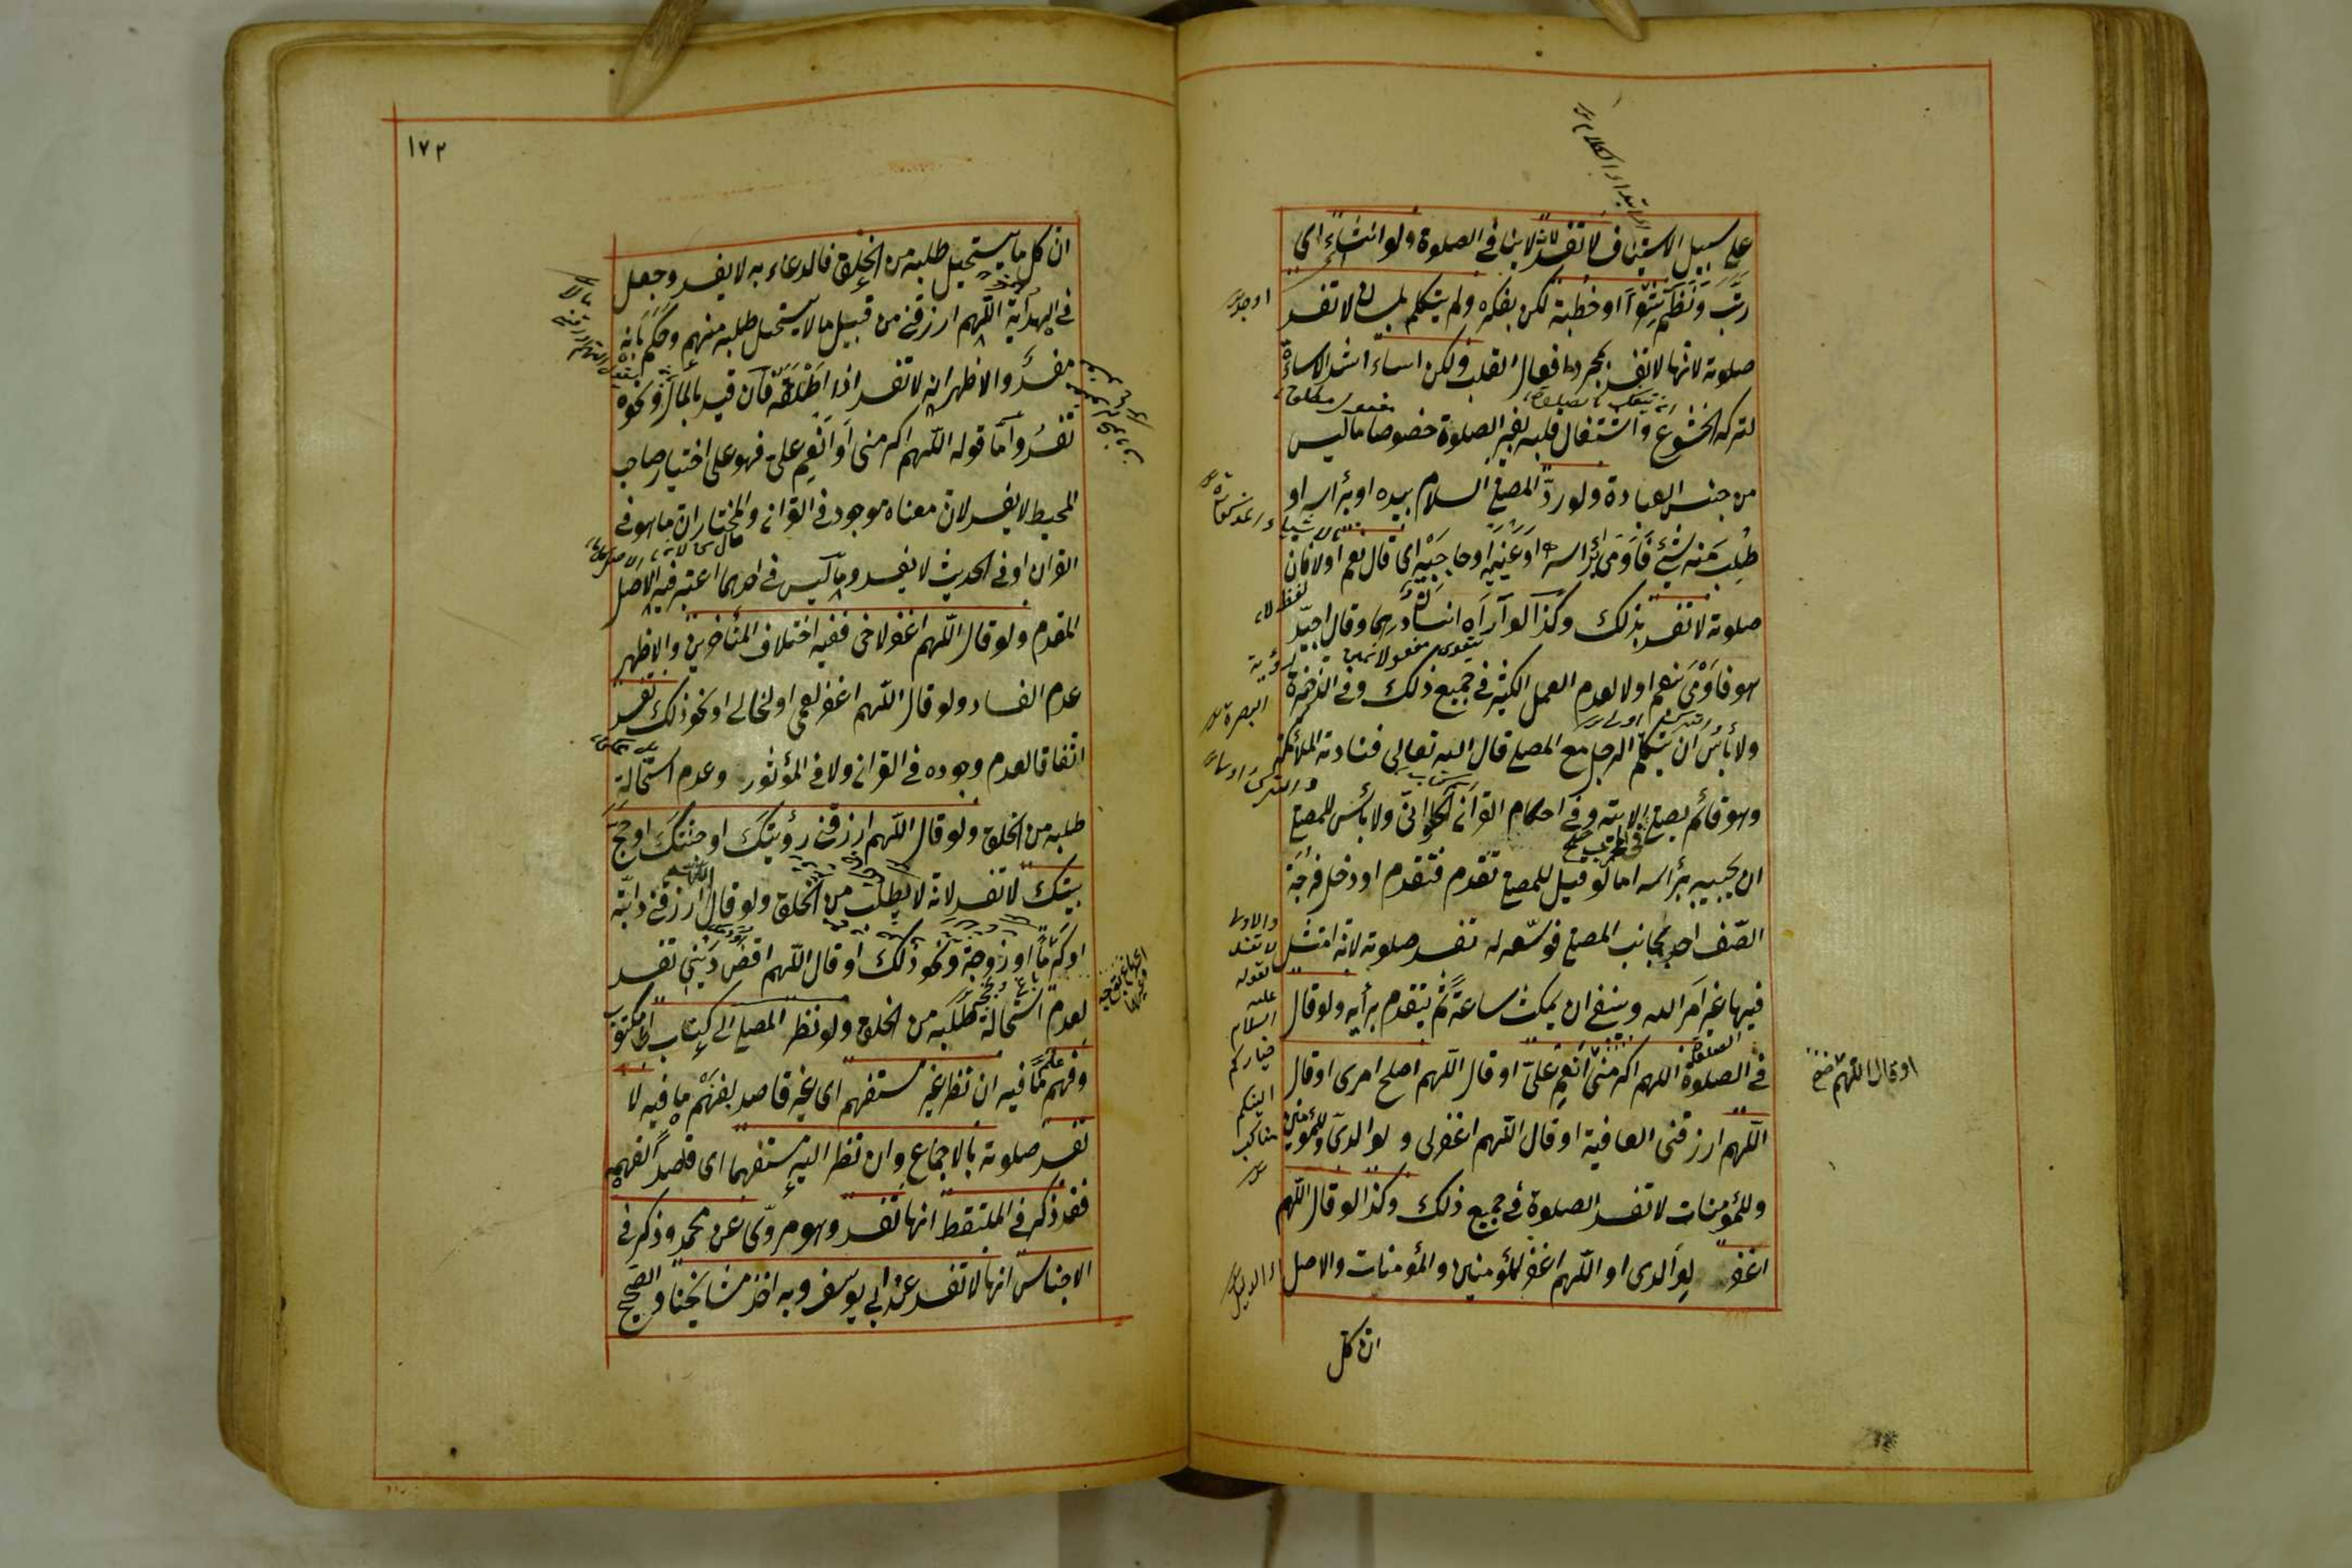 على سبيل الاستيناف لا تفسد لانه لا ينافي الصلوة ولو انشاء اى
رتب ونظم شعرا او خطبة لكن بفكره ولم يتكلم بلسانه لا تفسد
صلوته لانها لا تفسد بمجرد افعال القلب ولكن اساء اشد الاساءة
لتركه الخشوع واشتغال قلبه بغير الصلوة خصوصا ما ليس
من جنس العبادة ولو ردّ المصلى السلام بيده او برأسه او
طُلِبَ منه شئ فاومى برأسه او عينيه او حاجبيه اى قال نعم او لا فان
صلوته لا تفسد بذلك وكذا لو آراه انسان درهما وقال اجيّد
هو فاومى بنعم او لا لعدم العمل الكثير في جميع ذلك وفي الذخيرة
ولا بأس ان يتكلم الرجل مع المصلى قال الله تعالى فنادته الملائكة
وهو قائم يصلى الاية وفي احكام القرآن للحلوانى ولا بأس للمصلى
ان يجيبه برأسه اما لو قيل للمصلى تقدم فتقدم او دخل فرجة
الصّف احد بجانب المصلى فوسّعه له تفسد صلوته لانه امتثل
فيها غير امر الله وينبغى ان يمكث ساعة ثم يتقدم برأيه ولو قال
في الصلوة اللهم اكرمنى انعم علىّ او قال اللّهم اصلح امرى او قال
اللّهم ارزقنى العافية او قال اللّهم اغفر لى ولوالدىّ وللمؤمنين
وللمؤمنات لا تفسد الصلوة في جميع ذلك وكذا لو قال اللّهم
اغفر لوالدى او اللّهم اغفر للمؤمنين والمؤمنات والاصل
ان كل
او قال اللّهم
والاولى
لا تفسد
لقوله
عليه
السلام
خياركم
الينكم
مناكب
١٧٢
ان كل ما يستحيل طلبه من الخلق فالدعاء به لا يفسد وجعل
في الهداية اللّهم ارزقنى من قبيل ما لا يستحيل طلبه منهم وحكم بانه
مفسد والاظهر انه لا تفسد اذا اطلقه فان قيد بالمال ونحوه
تفسد واما قوله اللّهم اكرمنى او انعم علىّ فهو على اختيار صاحب
المحيط لا يفسد لان معناه موجود في القرآن والمختار ان ما هو في
القرآن او في الحديث لا يفسد وما ليس في احدهما اعتبر فيه الاصل
المقدم ولو قال اللّهم اغفر لاخى ففيه اختلاف المتأخرين والاظهر
عدم الفساد ولو قال اللّهم اغفر لعمى او لخالى او نحو ذلك تفسد
اتفاقا لعدم وجوده في القرآن ولا في المؤثور وعدم استحالة
طلبه من الخلق ولو قال اللّهم ارزقنى رؤيتك او جنتك او حج
بيتك لا تفسد لانه لا يطلب من الخلق ولو قال ارزقنى دابّة
او كرما او زوجة ونحو ذلك او قال اللّهم اقض دينى تفسد
لعدم استحالة طلبه من الخلق ولو نظر المصلى الى كتاب اى مكتوب
وفهم مما فيه ان نظر غير مستفهم اى غير قاصد لفهم ما فيه لا
تفسد صلوته بالاجماع وان نظر اليه مستفهما اى قاصدا لفهمه
فقد ذكر في الملتقط انها تفسد وهو مروّى عن محمد وذكر في
الاجناس انها لا تفسد عند ابى يوسف وبه اخذ مشايخنا والصحيح